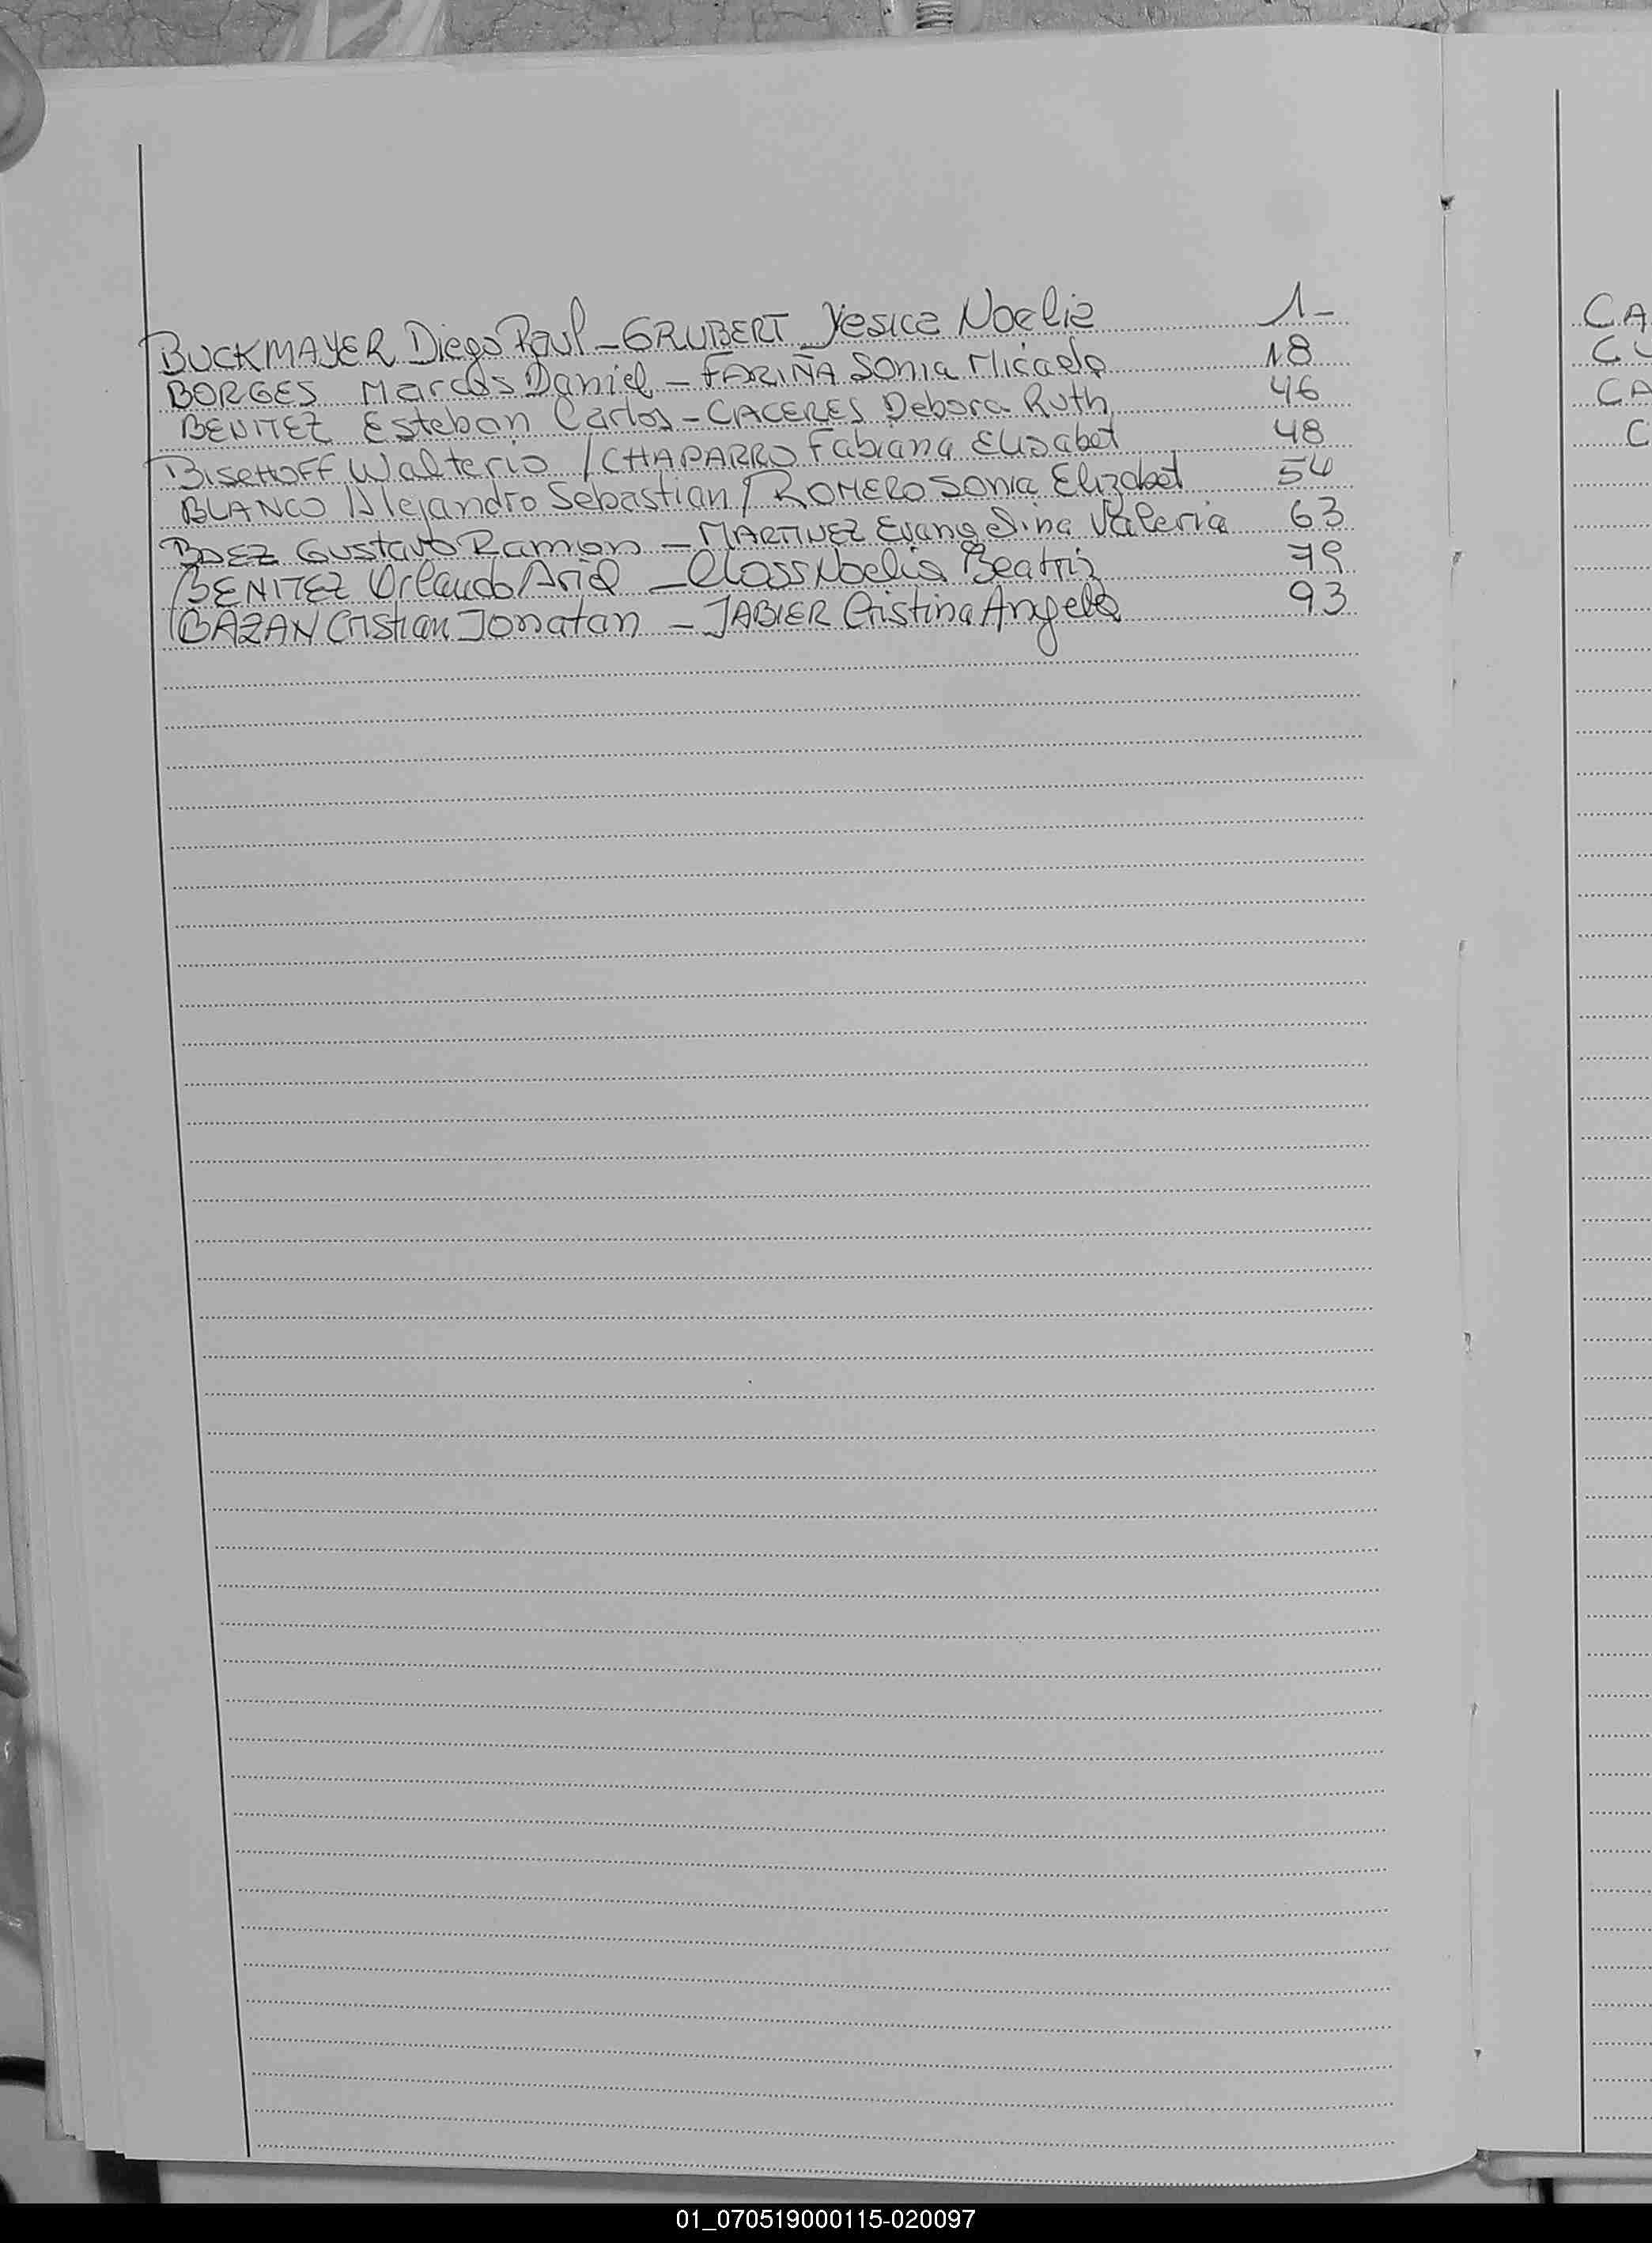 BUCKMAYER Diego Raul - GRUBERT Yesica Noelia 1-
BORGES Marcos Daniel - FARIÑA Sonia Micaela 18
BENITEZ Esteban Carlos - CACERES Debora Ruth 46
BISCHOFF Walterio / CHAPARRO Fabiana Elisabet 48
BLANCO Alejandro Sebastian / ROMERO Sonia Elizabet 54
BAEZ Gustavo Ramon - MARTINEZ Evangelina Valeria 63
BENITEZ Orlando Ariel - Class Noelia Beatriz 79
BAZAN Cristian Jonatan - JABIER Cristina Angela 93
CA
CA
C
01_070519000115-020097